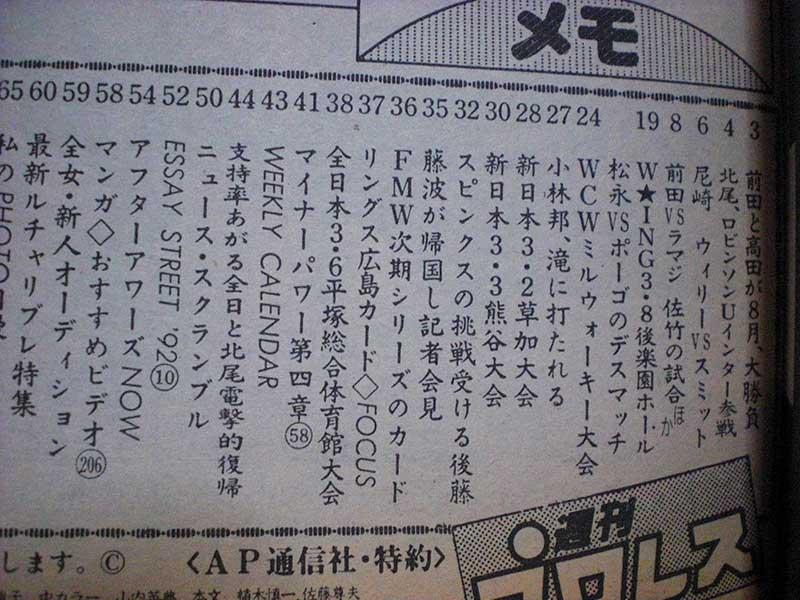 メモ
3 前田と高田が8月、大勝負
4 北尾、ロビンソンUインター参戦
6 尾崎 ウィリーVSスミット
8 前田VSラマジ 佐竹の試合ほか
19 W★ING3・8後楽園ホール
松永VSポーゴのデスマッチ
24 WCWミルウォーキー大会
27 小林邦、滝に打たれる
28 新日本3・2草加大会
30 新日本3・3熊谷大会
32 スピンクスの挑戦受ける後藤
35 藤波が帰国し記者会見
36 FMW次期シリーズのカード
37 リングス広島カード◇FOCUS
38 全日本3・6平塚総合体育館大会
41 マイナーパワー第四章㊽
43 WEEKLY CALENDAR
44 支持率あがる全日と北尾電撃的復帰
50 ニュース・スクランブル
52 ESSAY STREET '92⑩
54 アフターアワーズNOW
58 マンガ◇おすすめビデオ(206)
59 全女・新人オーディション
60 最新ルチャリブレ特集
65 私のPHOTO
します。© 〈AP通信社・特約〉
本文、植木慎一、佐藤尊夫
週刊
プロレス